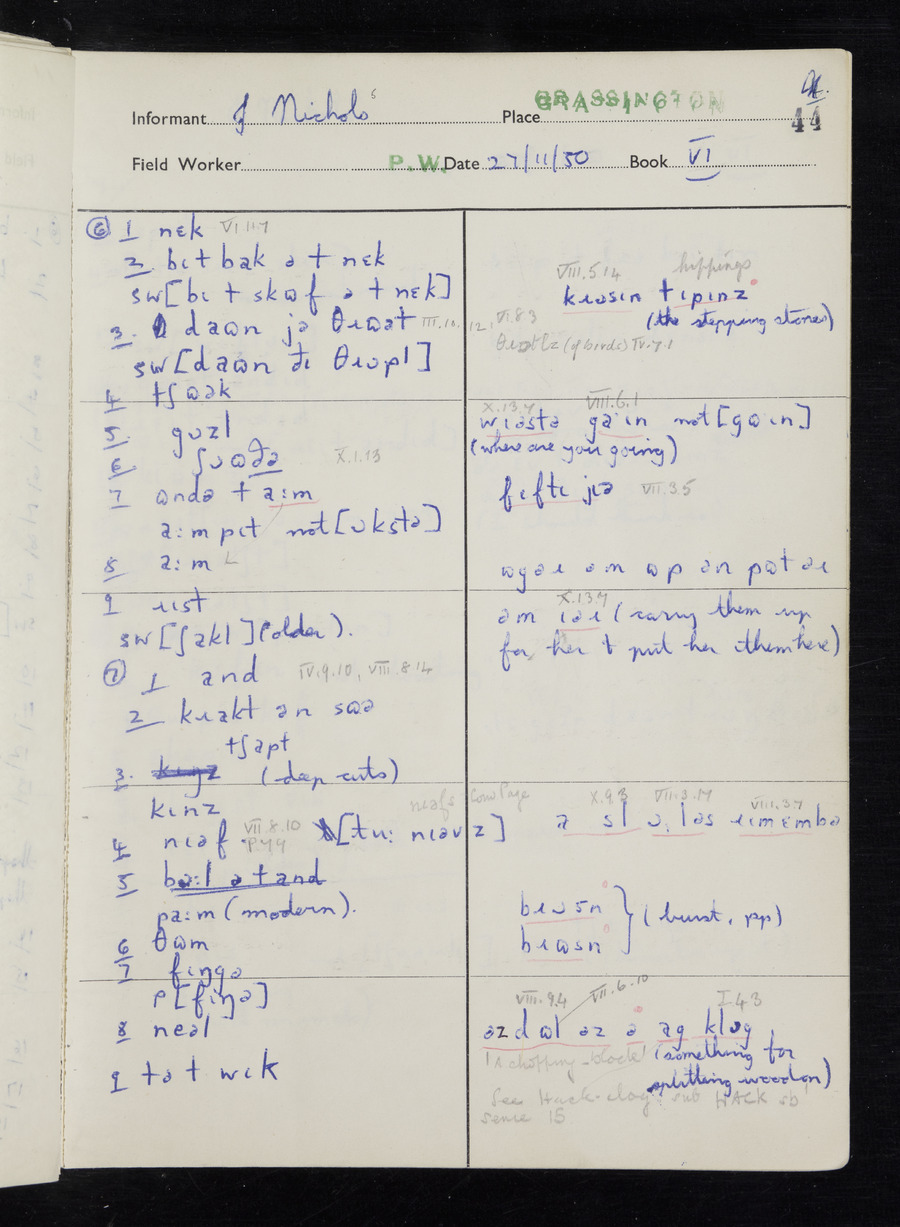 44
Informant J Nichols Place GRASSINGTON
Field Worker P.W. Date 27/11/50 Book VI
⑥ 1 nɛk VI.11.7
2 bɩt bak ə t nɛk
sw[bɩ t skɷf ə t nɛk]
3. daɷn jə θɹɷət III.10.12, VI.8.3
sw[daɷn ðɩ θɹʋpl]
4 tʃɷək
5. guzl
6 ʃʋɷðə X.1.13
7 ɷndə t a:m
a:m pɩt not [ʋkstə]
8 a:m
9 ɹɩst
sw[ʃakl] (older).
⑦ 1 and IV.9.10, VIII.8.14
2 kɹakt ən sɷə
tʃapt
3. (deep cuts)
kɩnz
4 nɩəf VII.8.10 [tu: nɩəvz]
5 ba:l ə t and
pa:m (modern).
6 θɷm
7 fɩŋgə
P [fɩŋə]
8 neəl
9 t ə t wɩk
VIII.5.14 hippings
kɹʋsɩn tɩpɩnz
(the stepping stones)
(of birds) IV.7.1
X.13.7 VIII.6.1
wɩəstə ga·ɩn not [gɷɩn]
(where are you going)
fɩftɩ jɩə VII.3.5
əm ɷp ən pɷt əɹ
X.13.7
əm ɩəɹ (carry them up
for her & put her them here)
X.9.3 VII.3.17 VIII.3.7
a sl ʋ ləs ɹɩmɛmbə
bɹʋsn
bɹɷsn } (burst, pp)
VIII.9.4 VII.6.10 I.4.3
əzd ɷl əz ə ag klɒg
'A chopping-block' (something for
splitting wood on)
See Hack-clog sub HACK sb'
sense 15